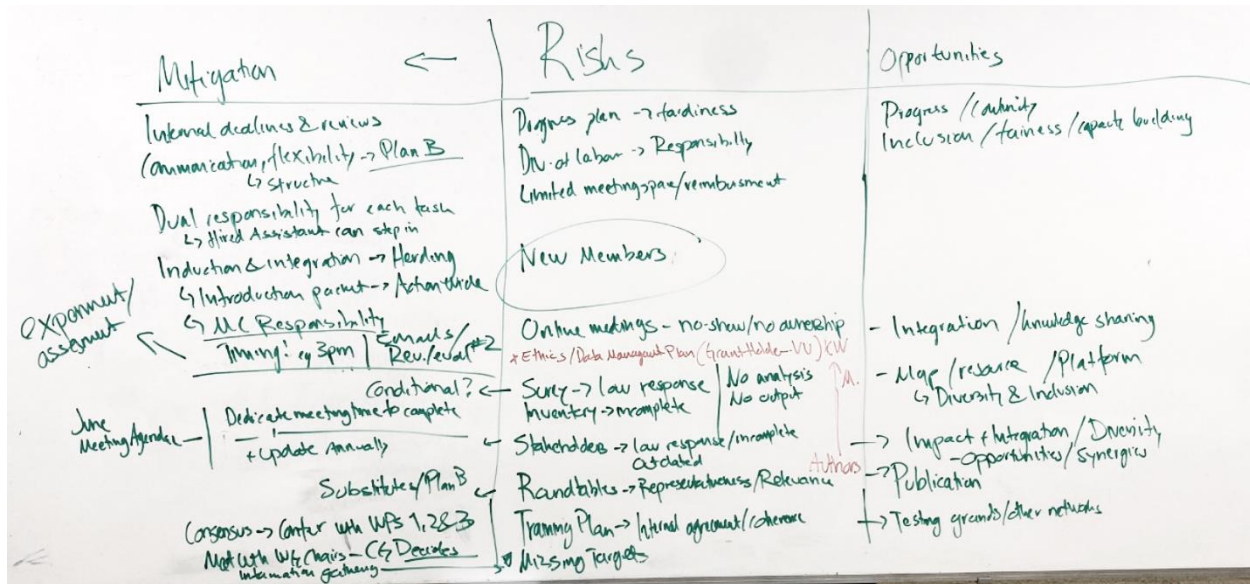 Mitigation ←
Internal deadlines & reviews
Communication, flexibility → Plan B
↳ Structure
Dual responsibility for each task
↳ Hired Assistant can step in
Induction & integration → Herding
↳ Introduction packet →
↳ MC Responsibility
Timing! eg 3pm | Emails/
Rev./eval #2
Conditional?
June
Meeting Agenda
Dedicate meeting time to complete
+ update Annually
Substitutes/Plan B
Consensus → Confer with WPs 1, 2 & 3
Meet with WG Chairs – CG Decides
information gathering
Risks
Progress plan → tardiness
Div. of labour → Responsibility
Limited meeting space/reimbursment
New Members
Online meetings – no-show/no ownership
* Ethics/Data Managemt Plan (Grant Holder – VU) KW
Survey → low response
Inventory → incomplete
No analysis
No output
Stakeholders → low response/incomplete
outdated
Authors
Roundtables → Representativeness/Relevance
Training Plan → Internal agreement/coherence
Missing Targets
Opportunities
Progress /
Inclusion / fairness / capacity building
– Integration / knowledge sharing
– Map / resource / Platform
↳ Diversity & Inclusion
→ Impact + Integration / Diversity
– Opportunities / Synergies
→ Publication
→ Testing grounds/other networks